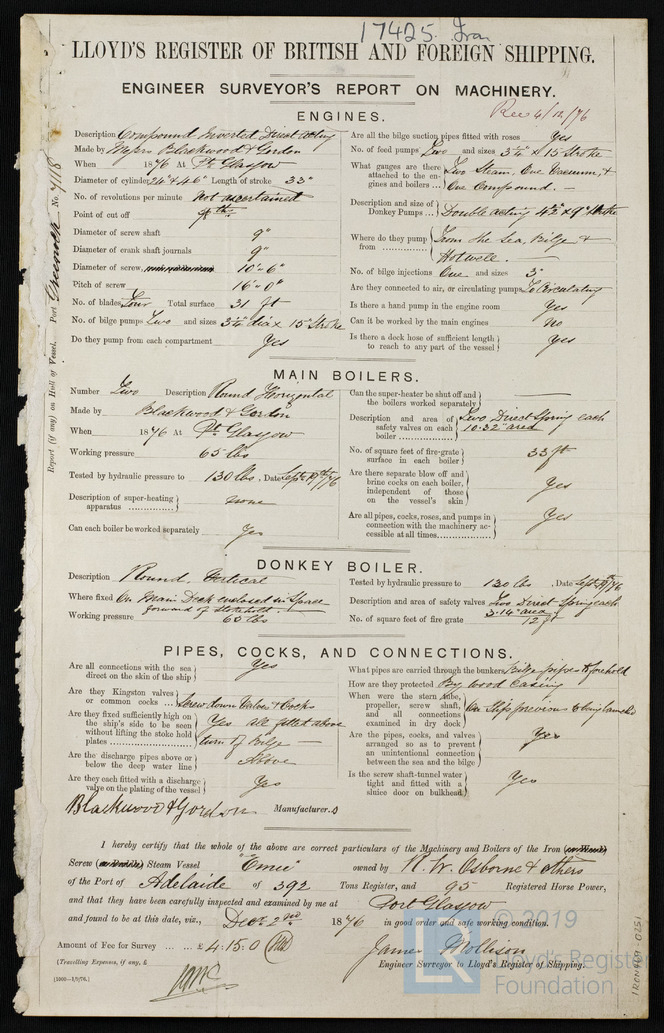 17425 Iron
LLOYD'S REGISTER OF BRITISH AND FOREIGN SHIPPING.
ENGINEER SURVEYOR'S REPORT ON MACHINERY.
Rec 4/12/76
Report (if any) on Hull of Vessel. Port Greenock No. 7118
ENGINES.
Description Compound Inverted Direct Acting
Made by Messrs Blackwood & Gordon
When 1876 At Pt Glasgow
Diameter of cylinder 24" & 46" Length of stroke 33"
No. of revolutions per minute Not ascertained
Point of cut off
Diameter of screw shaft 9"
Diameter of crank shaft journals 9"
Diameter of screw, 10'. 6"
Pitch of screw 16'. 0"
No. of blades Four Total surface 31 ft
No. of bilge pumps Two and sizes 3¼" dia x 15" Stroke
Do they pump from each compartment Yes
Are all the bilge suction pipes fitted with roses Yes
No. of feed pumps Two and sizes 3¼" x 15 Stroke
What gauges are there attached to the engines and boilers ... Two Steam, One Vacuum, &
One Compound. —
Description and size of Donkey Pumps ... Double acting 4½" x 9" Stroke
Where do they pump from From the Sea, Bilge &
Hotwell. —
No. of bilge injections One and sizes 3"
Are they connected to air, or circulating pumps To Circulating
Is there a hand pump in the engine room Yes
Can it be worked by the main engines No
Is there a deck hose of sufficient length to reach to any part of the vessel Yes
MAIN BOILERS.
Number Two Description Round Horizontal
Made by Blackwood & Gordon
When 1876 At Pt Glasgow
Working pressure 65 lbs
Tested by hydraulic pressure to 130 lbs. Date Sept 19th/76
Description of super-heating apparatus none
Can each boiler be worked separately Yes
Can the super-heater be shut off and the boilers worked separately —
Description and area of safety valves on each boiler Two Direct Spring each
10.32" area
No. of square feet of fire-grate surface in each boiler 33 ft
Are there separate blow off and brine cocks on each boiler, independent of those on the vessel's skin Yes
Are all pipes, cocks, roses, and pumps in connection with the machinery accessible at all times Yes
DONKEY BOILER.
Description Round. Vertical
Where fixed On Main Deck enclosed in Space
forward of Stokehold. —
Working pressure 65 lbs
Tested by hydraulic pressure to 130 lbs. Date Sept 19th/76
Description and area of safety valves Two Direct Spring each
3.14" area
No. of square feet of fire grate 12 ft
PIPES, COCKS, AND CONNECTIONS.
Are all connections with the sea direct on the skin of the ship Yes
Are they Kingston valves or common cocks Screw down Valves & Cocks
Are they fixed sufficiently high on the ship's side to be seen without lifting the stoke hold plates Yes all fitted above
turn of Bilge —
Are the discharge pipes above or below the deep water line Above
Are they each fitted with a discharge valve on the plating of the vessel Yes
What pipes are carried through the bunkers Bilge pipes to forehold
How are they protected By wood Casing
When were the stern tube, propeller, screw shaft, and all connections examined in dry dock On Slip previous to being launched
Are the pipes, cocks, and valves arranged so as to prevent an unintentional connection between the sea and the bilge Yes
Is the screw shaft-tunnel water tight and fitted with a sluice door on bulkhead Yes
Blackwood & Gordon Manufacturer.
I hereby certify that the whole of the above are correct particulars of the Machinery and Boilers of the Iron (or Wood)
Screw (or Paddle) Steam Vessel "Emu" owned by R. W. Osborne & others
of the Port of Adelaide of 392 Tons Register, and 95 Registered Horse Power,
and that they have been carefully inspected and examined by me at Port Glasgow
and found to be at this date, viz., Decr 2nd 1876 in good order and safe working condition.
Amount of Fee for Survey ... ... £ 4.15.0
James Mollison
(Travelling Expenses, if any, £
Engineer Surveyor to Lloyd's Register of Shipping.
[1000—1/9/76.]
© 2019
Lloyd's Register
Foundation
IRON469-0251